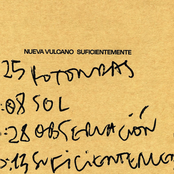 NUEVA VULCANO SUFICIENTEMENTE
25 ROTONDAS
:08 SOL
:28 OBSERVACIÓN
:13 SUFICIENTEME